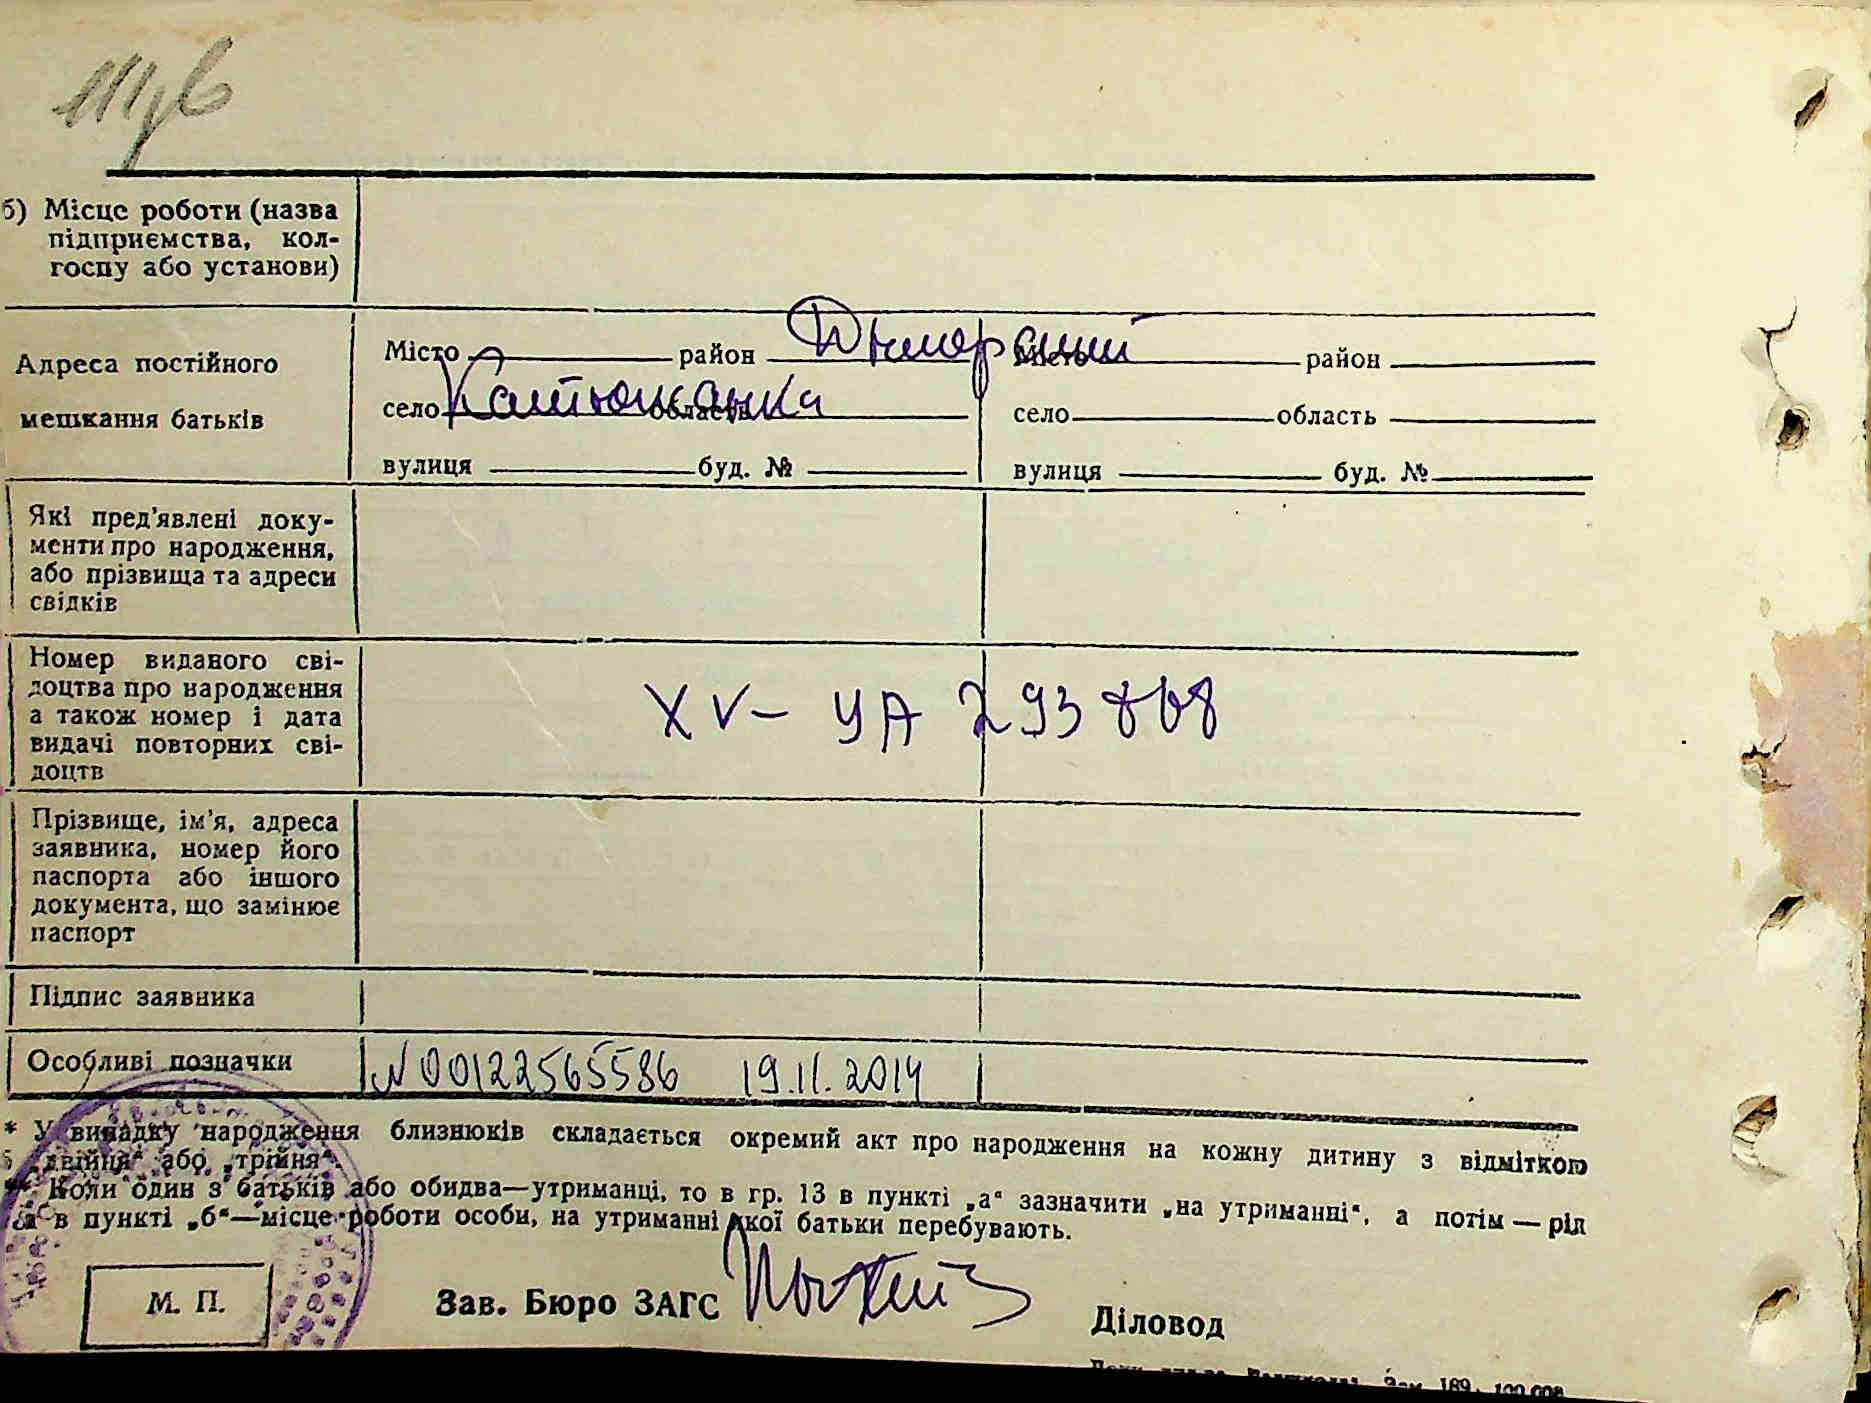 б) Місце роботи (назва
підприємства, кол-
госпу або установи)
Адреса постійного
мешкання батьків
Місто район Димерський Місто район
село Катюжанка область село область
вулиця буд. № вулиця буд. №
Які пред'явлені доку-
менти про народження,
або прізвища та адреси
свідків
Номер виданого сві-
доцтва про народження
а також номер і дата
видачі повторних сві-
доцтв
XV – УА 293868
Прізвище, ім'я, адреса
заявника, номер його
паспорта або іншого
документа, що замінює
паспорт
Підпис заявника
Особливі позначки
№ 00122565586 19.11.2014
* У випадку народження близнюків складається окремий акт про народження на кожну дитину з відміткою
„двійня“ або „трійня“.
** Коли один з батьків або обидва—утриманці, то в гр. 13 в пункті „а“ зазначити „на утриманні“, а потім — рід
в пункті „б“—місце роботи особи, на утриманні якої батьки перебувають.
М. П.
Зав. Бюро ЗАГС
Діловод
Зам. 189. 100.000